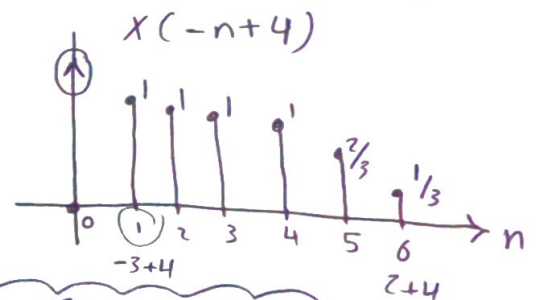 x(-n+4)
1 1 1 1 2/3 1/3
0 1 2 3 4 5 6 n
-3+4 2+4